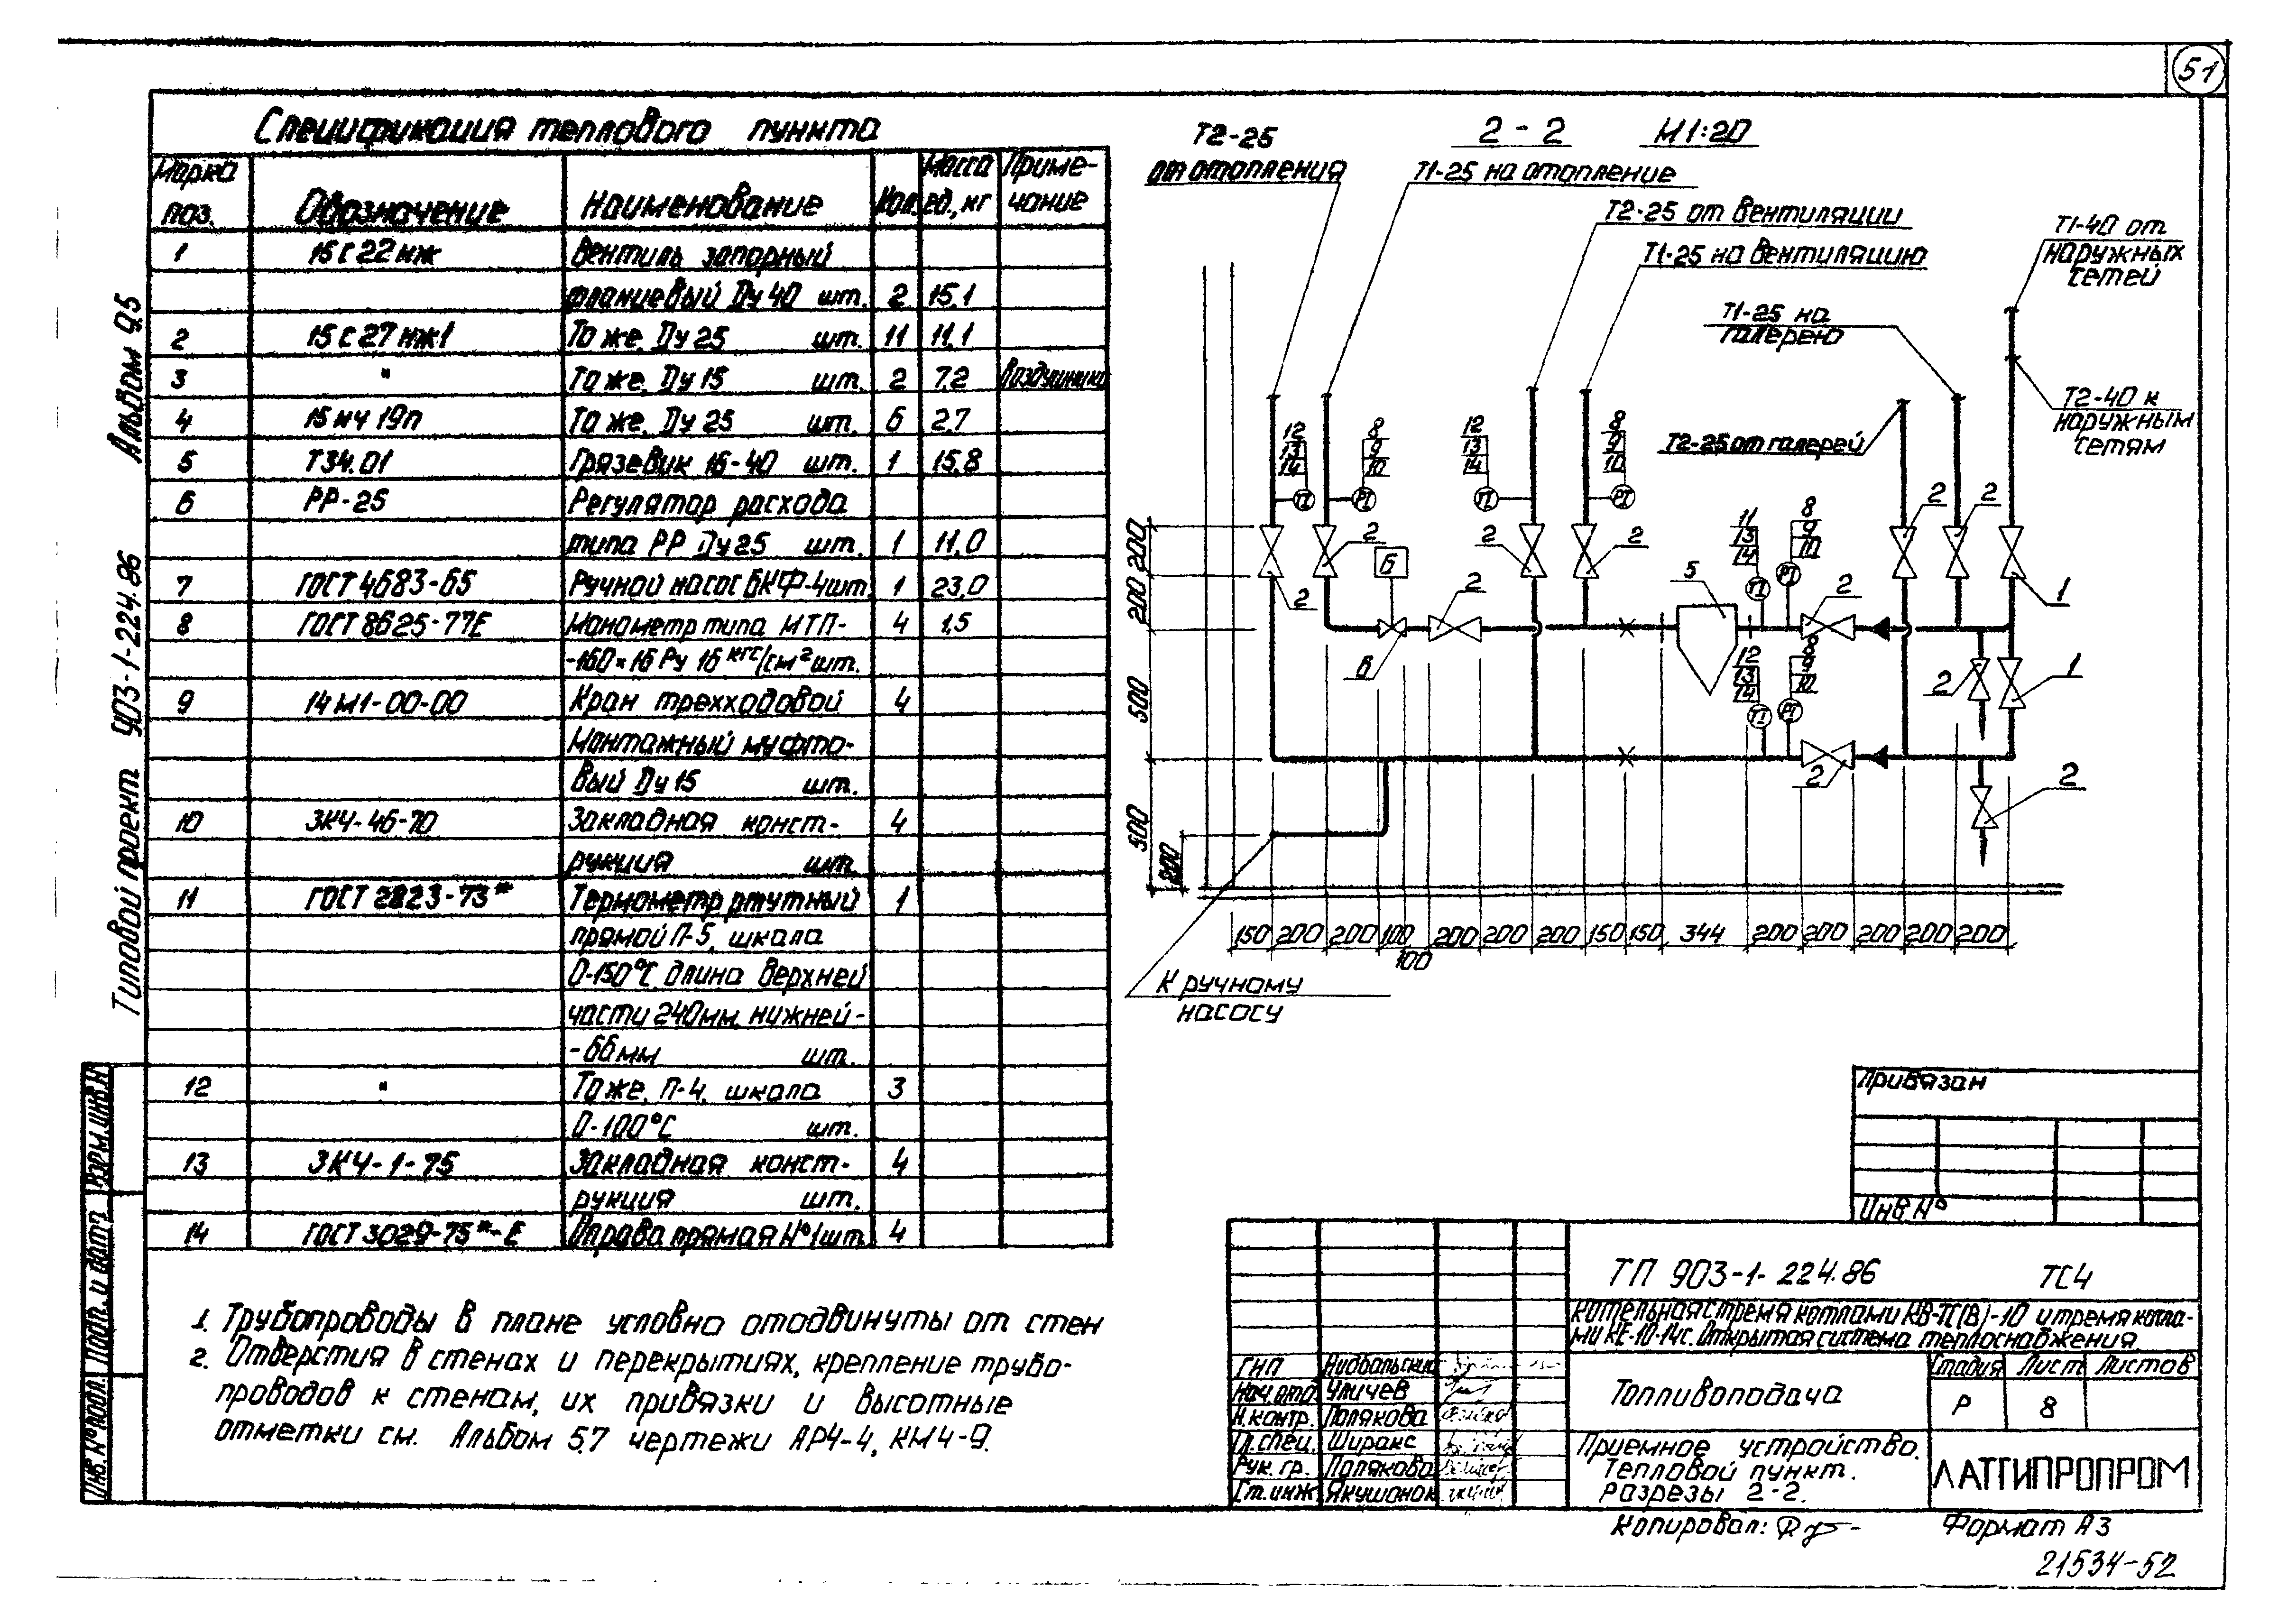 51
Альбом 9.5
Типовой проект 903-1-224.86
Спецификация теплового пункта
Марка поз. Обозначение Наименование Кол. Масса ед., кг Примечание
1 15с22нж Вентиль запорный
фланцевый Ду 40 шт. 2 15,1
2 15с27нж1 То же, Ду 25 шт. 11 11,1
3 " То же, Ду 15 шт. 2 7.2 Воздушники
4 15кч19п То же, Ду 25 шт. 6 2,7
5 Т34.01 Грязевик 16-40 шт. 1 15,8
6 РР-25 Регулятор расхода
типа РР Ду 25 шт. 1 11,0
7 ГОСТ 4683-65 Ручной насос БКФ-4 шт. 1 23,0
8 ГОСТ 8625-77Е Манометр типа МТП-
-160×16 Ру 16 кгс/см² шт. 4 1,5
9 14М1-00-00 Кран трехходовой 4
монтажный муфто-
вый Ду 15 шт.
10 ЗК4-46-70 Закладная конст- 4
рукция шт.
11 ГОСТ 2823-73* Термометр ртутный 1
прямой П-5, шкала
0-150°С, длина верхней
части 240мм, нижней-
-66мм шт.
12 " То же, П-4, шкала 3
0-100°С шт.
13 ЗК4-1-75 Закладная конст- 4
рукция шт.
14 ГОСТ 3029-75*-Е Оправа прямая №1 шт. 4
1. Трубопроводы в плане условно отодвинуты от стен
2. Отверстия в стенах и перекрытиях, крепление трубо-
проводов к стенам, их привязки и высотные
отметки см. Альбом 5.7 чертежи АР4-4, КМ4-9.
2-2 М1:20
Т2-25
от отопления
Т1-25 на отопление
Т2-25 от вентиляции
Т1-25 на вентиляцию
Т1-25 на
галерею
Т1-40 от
наружных
сетей
Т2-40 к
наружным
сетям
Т2-25 от галерей
12 13 14 TI
8 9 10 PI
12 13 14 TI
8 9 10 PI
11 13 14 TI
8 9 10 PI
12 13 14 TI
8 9 10 PI
2 2 2 2 2 2 1
Б 2 5 2
6 2 1
2 2
200 200 500 500 200
150 200 200 100 100 200 200 200 150 150 344 200 200 200 200 200
К ручному
насосу
Привязан
Инв.№
ТП 903-1-224.86 ТС4
Котельная с тремя котлами КВ-ТС(В)-10 и тремя котла-
ми КЕ-10-14с. Открытая система теплоснабжения
ГИП
Нач.отд. Уличев
Н.контр. Полякова
Гл.спец. Ширакс
Рук. гр. Полякова
Ст.инж Якушонок
Топливоподача
Стадия Лист Листов
Р 8
Приемное устройство.
Тепловой пункт.
Разрезы 2-2.
ЛАТГИПРОПРОМ
Копировал:
Формат А3
21534-52
Инв.№ подл. Подп. и дата Взам.инв.№